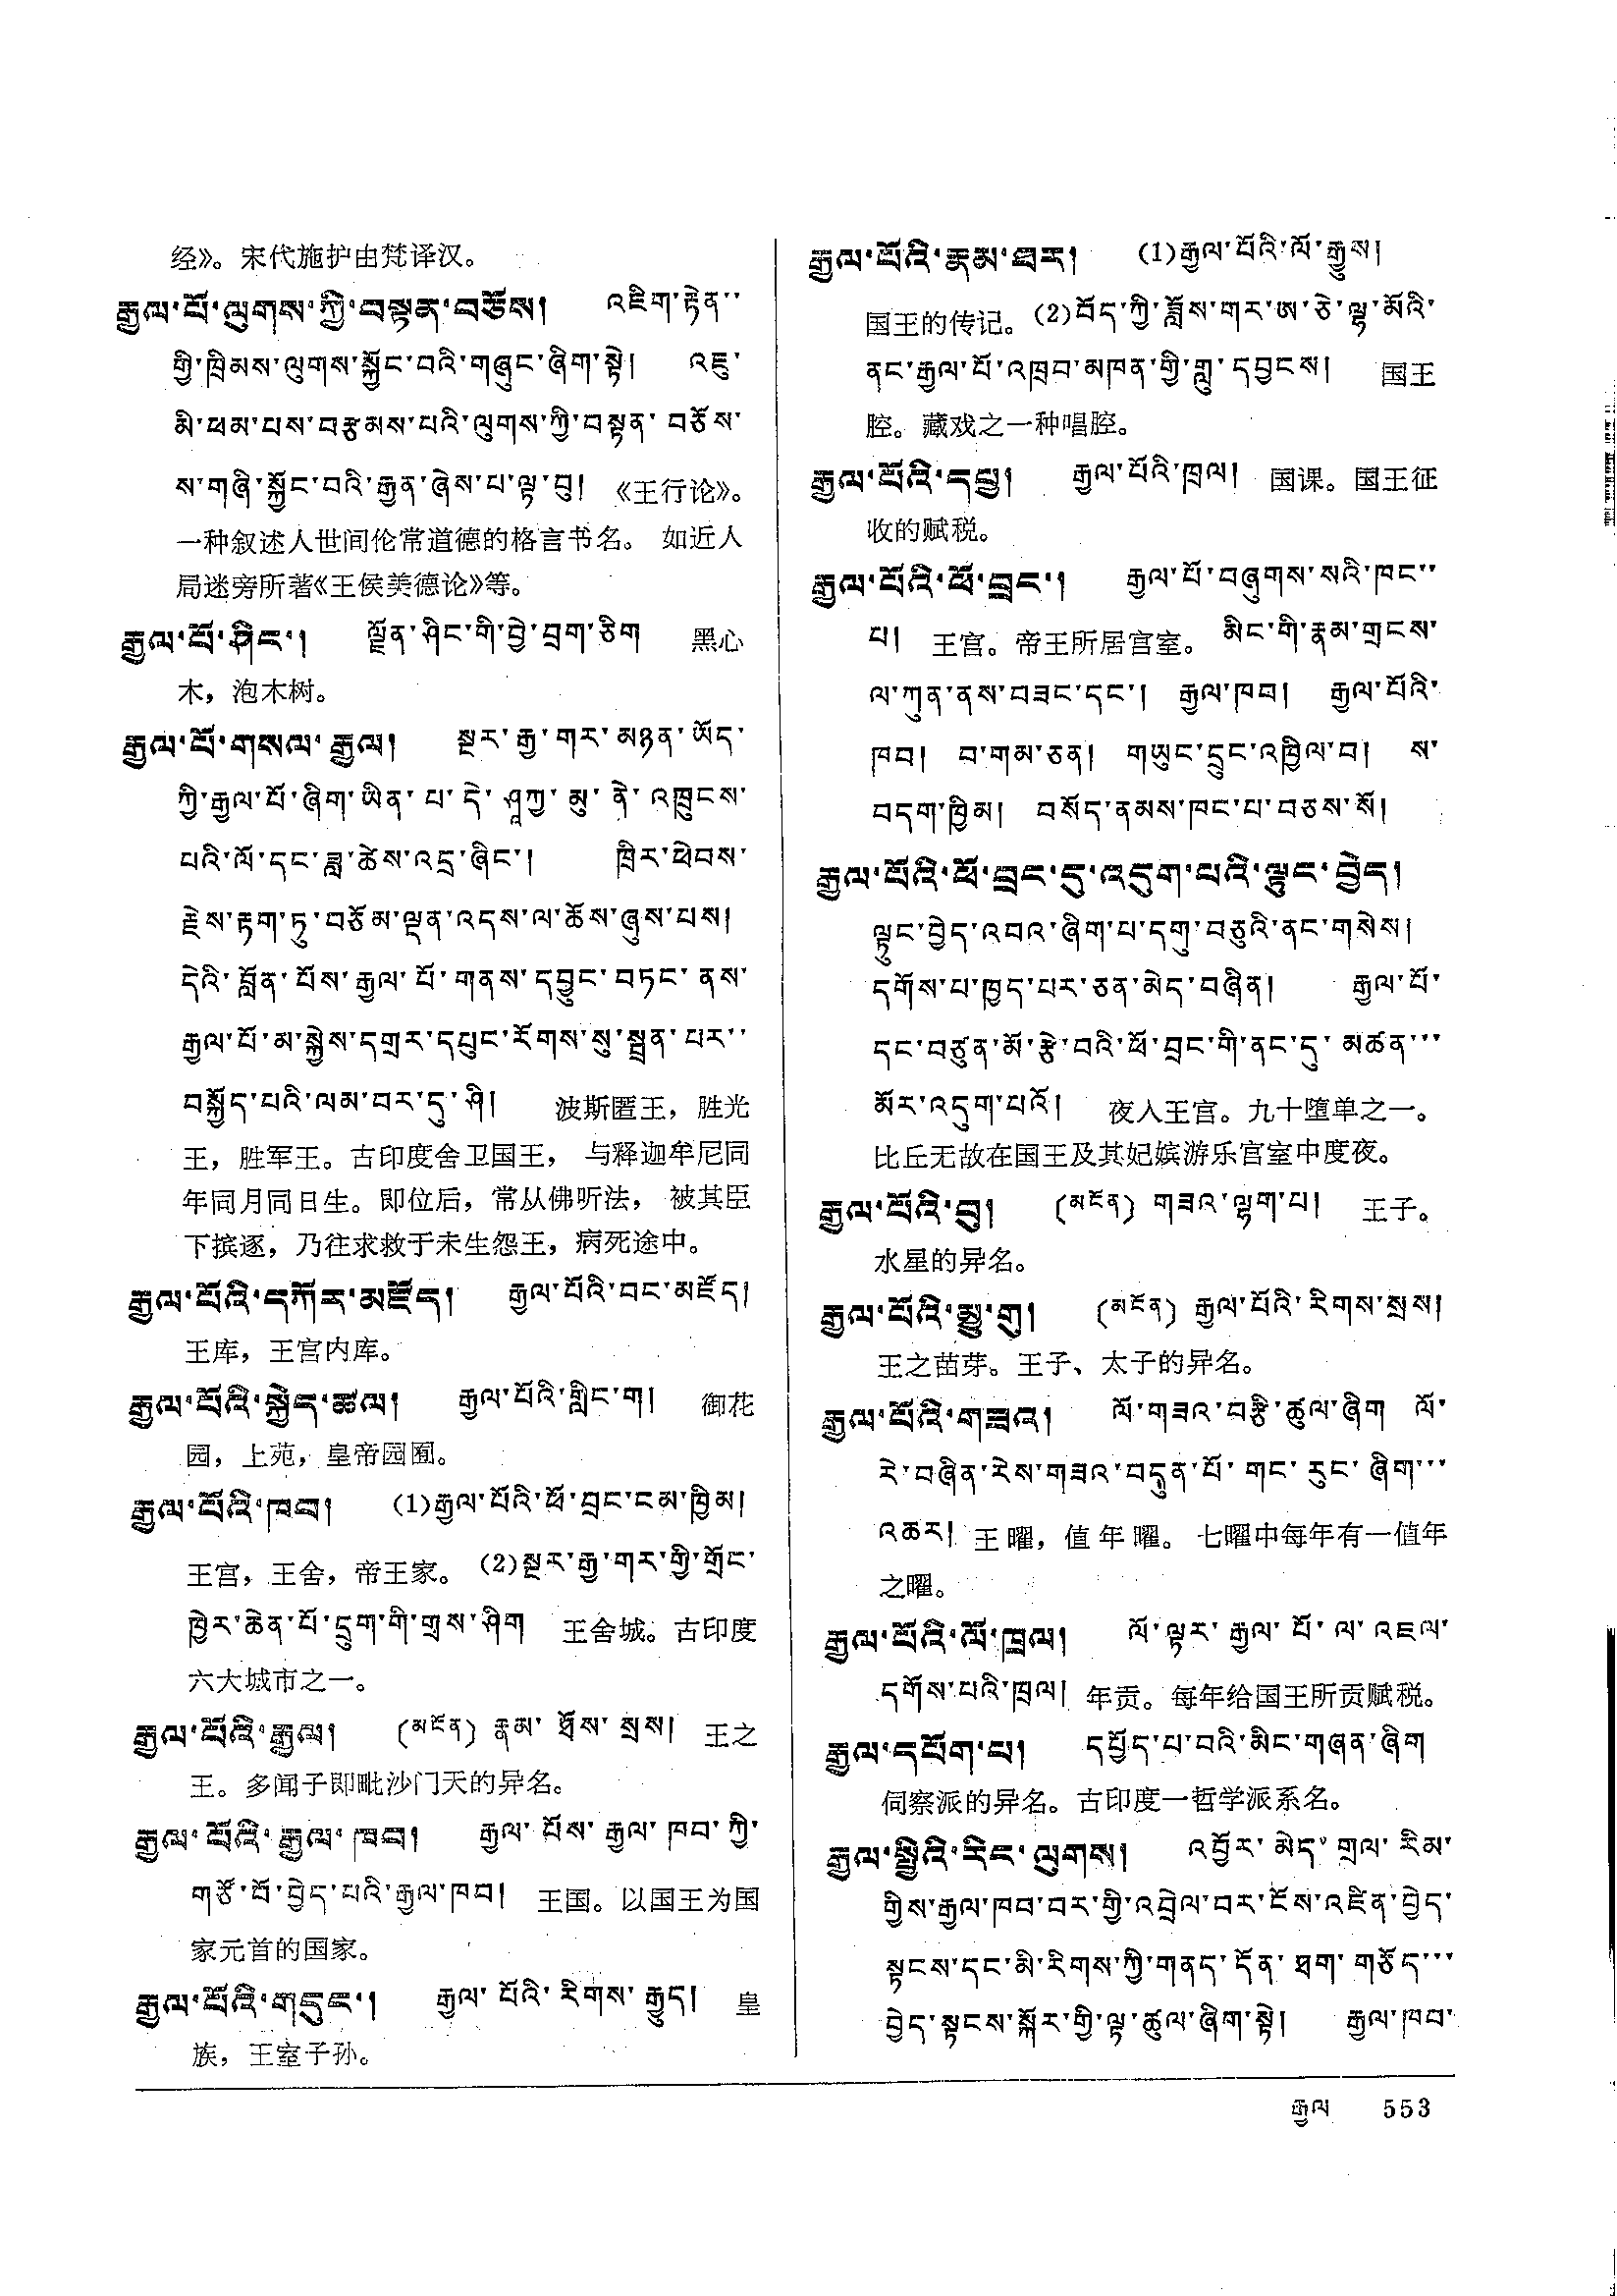 经》。宋代施护由梵译汉。
རྒྱལ་པོ་ལུགས་ཀྱི་བསྟན་བཅོས། འཇིག་རྟེན་་
གྱི་ཁྲིམས་ལུགས་སྐྱོང་བའི་གཞུང་ཞིག་སྟེ། འཇུ་
མི་ཕམ་པས་བརྩམས་པའི་ལུགས་ཀྱི་བསྟན་བཅོས་
ས་གཞི་སྐྱོང་བའི་རྒྱན་ཞེས་པ་ལྟ་བུ། 《王行论》。
一种叙述人世间伦常道德的格言书名。 如近人
局迷旁所著《王侯美德论》等。
རྒྱལ་པོ་ཤིང་། ལྗོན་ཤིང་གི་བྱེ་བྲག་ཅིག 黑心
木，泡木树。
རྒྱལ་པོ་གསལ་རྒྱལ། སྔར་རྒྱ་གར་མཉན་ཡོད་
ཀྱི་རྒྱལ་པོ་ཞིག་ཡིན་པ་དེ་ཤཱཀྱ་མུ་ནེ་འཁྲུངས་
པའི་ལོ་དང་ཟླ་ཚེས་འདྲ་ཞིང་། ཁྲིར་ཕེབས་
རྗེས་རྟག་ཏུ་བཅོམ་ལྡན་འདས་ལ་ཆོས་ཞུས་པས།
དེའི་བློན་པོས་རྒྱལ་པོ་གནས་དབྱུང་བཏང་ནས་
རྒྱལ་པོ་མ་སྐྱེས་དགྲར་དཔུང་རོགས་སུ་སྦྲན་པར་་
བསྐྱོད་པའི་ལམ་བར་དུ་ཤི། 波斯匿王，胜光
王，胜军王。古印度舍卫国王， 与释迦牟尼同
年同月同日生。即位后，常从佛听法， 被其臣
下摈逐，乃往求救于未生怨王，病死途中。
རྒྱལ་པོའི་དཀོར་མཛོད། རྒྱལ་པོའི་བང་མཛོད།
王库，王宫内库。
རྒྱལ་པོའི་སྐྱེད་ཚལ། རྒྱལ་པོའི་གླིང་ག། 御花
园，上苑，皇帝园囿。
རྒྱལ་པོའི་ཁབ། (1)རྒྱལ་པོའི་ཕོ་བྲང་ངམ་ཁྱིམ།
王宫，王舍，帝王家。 (2)སྔར་རྒྱ་གར་གྱི་གྲོང་
ཁྱེར་ཆེན་པོ་དྲུག་གི་གྲས་ཤིག 王舍城。古印度
六大城市之一。
རྒྱལ་པོའི་རྒྱལ། (མངོན) རྣམ་ཐོས་སྲས། 王之
王。多闻子即毗沙门天的异名。
རྒྱལ་པོའི་རྒྱལ་ཁབ། རྒྱལ་པོས་རྒྱལ་ཁབ་ཀྱི་
གཙོ་བོ་བྱེད་པའི་རྒྱལ་ཁབ། 王国。以国王为国
家元首的国家。
རྒྱལ་པོའི་གདུང་། རྒྱལ་པོའི་རིགས་རྒྱུད། 皇
族，王室子孙。
རྒྱལ་པོའི་རྣམ་ཐར། (1)རྒྱལ་པོའི་ལོ་རྒྱུས།
国王的传记。(2)བོད་ཀྱི་ཟློས་གར་ཨ་ཅེ་ལྷ་མོའི་
ནང་རྒྱལ་པོ་འཁྲབ་མཁན་གྱི་གླུ་དབྱངས། 国王
腔。藏戏之一种唱腔。
རྒྱལ་པོའི་དཔྱ། རྒྱལ་པོའི་ཁྲལ། 国课。国王征
收的赋税。
རྒྱལ་པོའི་ཕོ་བྲང་། རྒྱལ་པོ་བཞུགས་སའི་ཁང་་
པ། 王宫。帝王所居宫室。 མིང་གི་རྣམ་གྲངས་
ལ་ཀུན་ནས་བཟང་དང་། རྒྱལ་ཁབ། རྒྱལ་པོའི་
ཁབ། བ་གམ་ཅན། གཡུང་དྲུང་འཁྱིལ་བ། ས་
བདག་ཁྱིམ། བསོད་ནམས་ཁང་པ་བཅས་སོ།
རྒྱལ་པོའི་ཕོ་བྲང་དུ་འདུག་པའི་ལྟུང་བྱེད།
ལྟུང་བྱེད་འབའ་ཞིག་པ་དགུ་བཅུའི་ནང་གསེས།
དགོས་པ་ཁྱད་པར་ཅན་མེད་བཞིན། རྒྱལ་པོ་
དང་བཙུན་མོ་རྩེ་བའི་ཕོ་བྲང་གི་ནང་དུ་མཚན་་་
མོར་འདུག་པའོ། 夜入王宫。九十堕单之一。
比丘无故在国王及其妃嫔游乐宫室中度夜。
རྒྱལ་པོའི་བུ། (མངོན) གཟའ་ལྷག་པ། 王子。
水星的异名。
རྒྱལ་པོའི་མྱུ་གུ། (མངོན) རྒྱལ་པོའི་རིགས་སྲས།
王之苗芽。王子、太子的异名。
རྒྱལ་པོའི་གཟའ། ལོ་གཟའ་བརྩི་ཚུལ་ཞིག ལོ་
རེ་བཞིན་རེས་གཟའ་བདུན་པོ་གང་རུང་ཞིག་་་
འཆར། 王曜，值年曜。 七曜中每年有一值年
之曜。
རྒྱལ་པོའི་ལོ་ཁྲལ། ལོ་ལྟར་རྒྱལ་པོ་ལ་འཇལ་
དགོས་པའི་ཁྲལ། 年贡。每年给国王所贡赋税。
རྒྱལ་དཔོག་པ། དཔྱོད་པ་བའི་མིང་གཞན་ཞིག
伺察派的异名。古印度一哲学派系名。
རྒྱལ་སྤྱིའི་རིང་ལུགས། འབྱོར་མེད་གྲལ་རིམ་
གྱིས་རྒྱལ་ཁབ་བར་གྱི་འབྲེལ་བར་ངོས་འཛིན་བྱེད་
སྟངས་དང་མི་རིགས་ཀྱི་གནད་དོན་ཐག་གཅོད་་་
བྱེད་སྟངས་སྐོར་གྱི་ལྟ་ཚུལ་ཞིག་སྟེ། རྒྱལ་ཁབ་
རྒྱལ 553